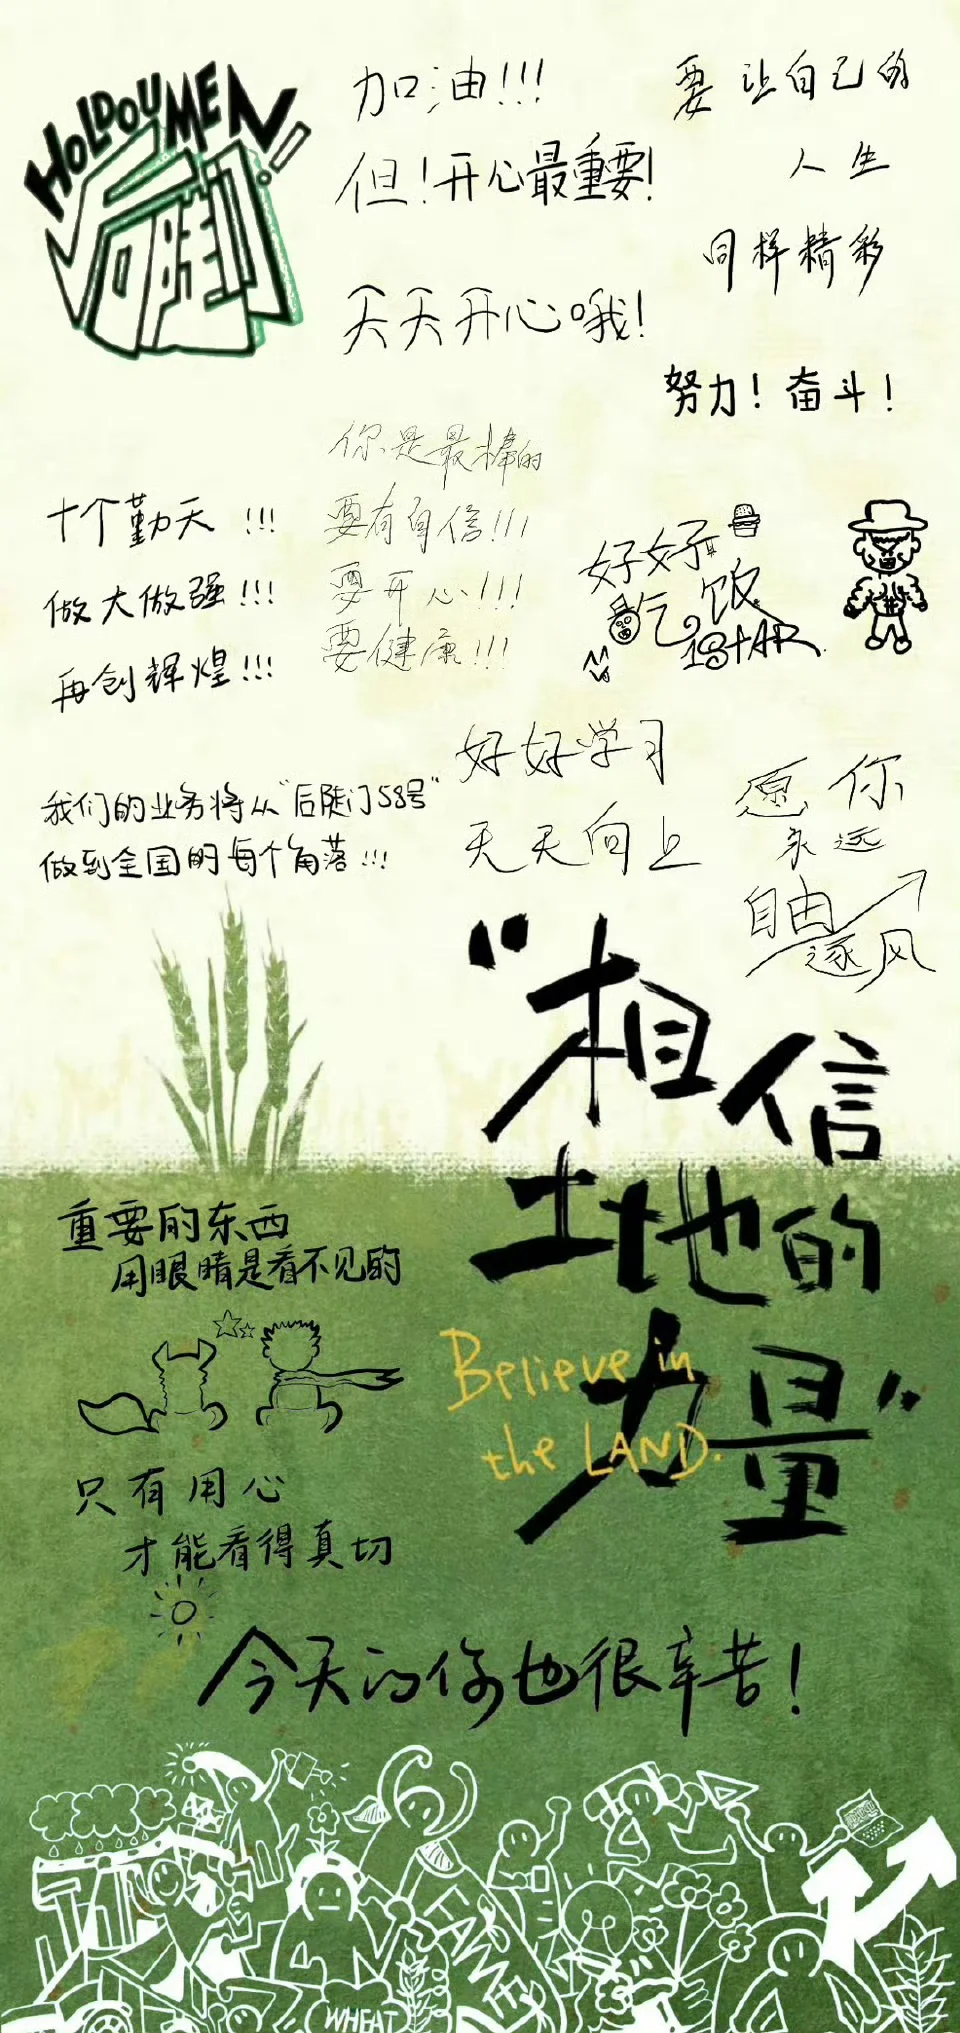 HOLDOUMEN!
后陡门
加油!!!
但!开心最重要!
天天开心哦!
要让自己的
人生
同样精彩
努力!奋斗!
你是最棒的
要有自信!!!
要开心!!!
要健康!!!
十个勤天!!!
做大做强!!!
再创辉煌!!!
好好
吃饭
我们的业务将从“后陡门58号”
做到全国的每个角落!!!
好好学习
天天向上
愿你
永远
自由
逐风
“相信
土地的
力量”
Believe in
the LAND.
重要的东西
用眼睛是看不见的
只有用心
才能看得真切
今天的你也很辛苦!
WHEAT